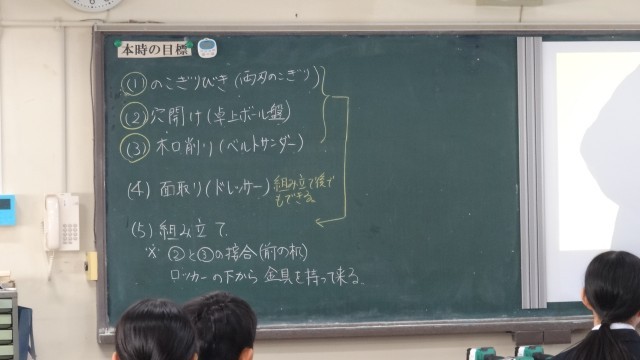 本時の目標
(1) のこぎりびき (両刃のこぎり)
(2) 穴開け (卓上ボール盤)
(3) 木口削り (ベルトサンダー)
(4) 面取り (ドレッサー) 組み立て後でもできる
(5) 組み立て
※ ②と③の接合 (前の机)
ロッカーの下から 金具を持って来る。